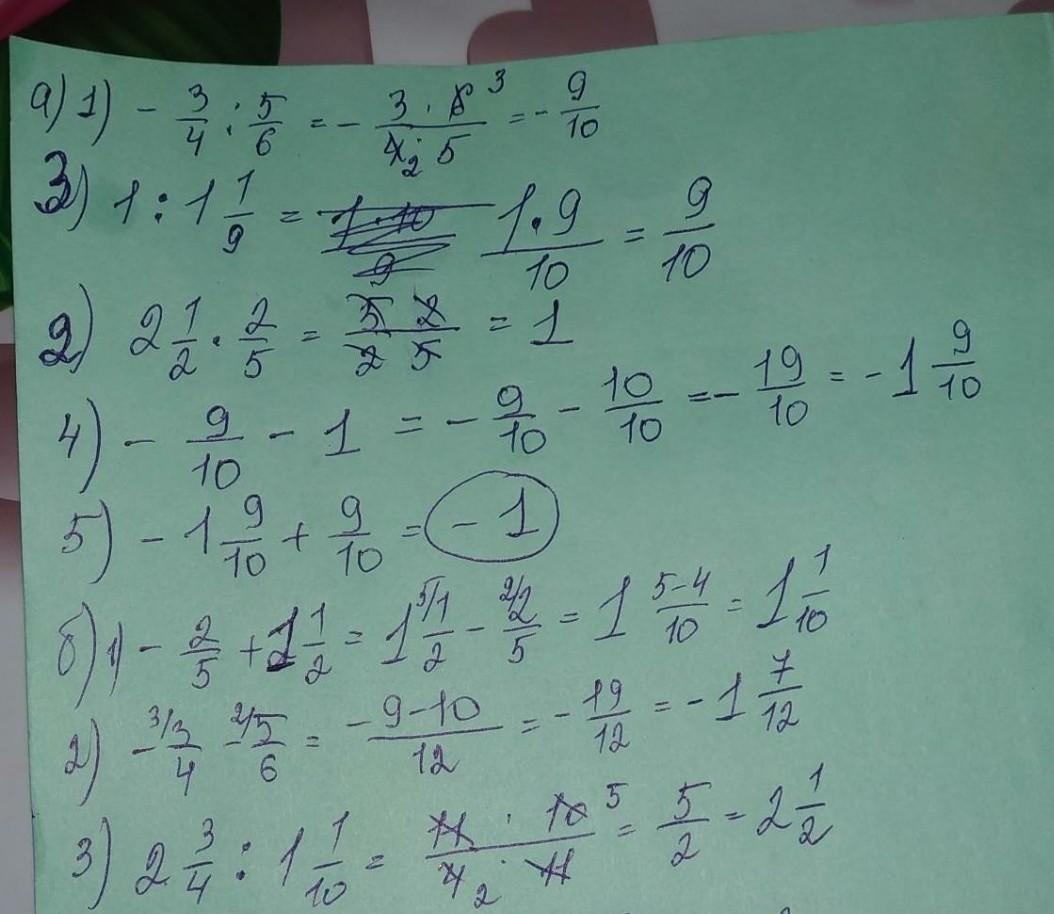 а) 1) - 3/4 : 5/6 = - 3 · 6 3 / 4 2 · 5 = - 9/10
3) 1 : 1 1/9 = 1 · 10 / 9 1 · 9 / 10 = 9/10
2) 2 1/2 · 2/5 = 5 2 / 2 5 = 1
4) - 9/10 - 1 = - 9/10 - 10/10 = - 19/10 = - 1 9/10
5) - 1 9/10 + 9/10 = - 1
б) 1) - 2/5 + 1 1/2 = 1 5/ 1/2 - 2/ 2/5 = 1 5-4/10 = 1 1/10
2) - 3/ 3/4 - 2/ 5/6 = -9-10/12 = - 19/12 = - 1 7/12
3) 2 3/4 : 1 1/10 = 11 · 10 5 / 4 2 · 11 = 5/2 = 2 1/2